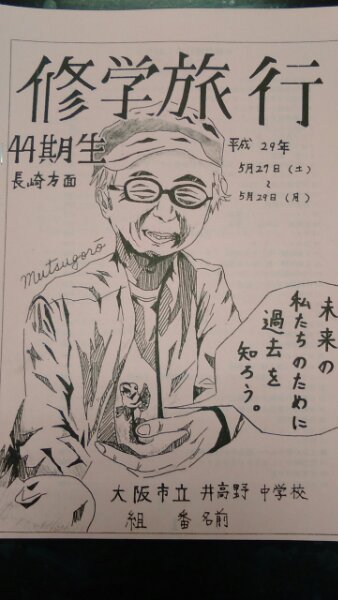 修学旅行
44期生
長崎方面
平成29年
5月27日(土)
~
5月29日(月)
Mutsugorō
未来の
私たちのために
過去を
知ろう。
大阪市立 井高野 中学校
組 番 名前